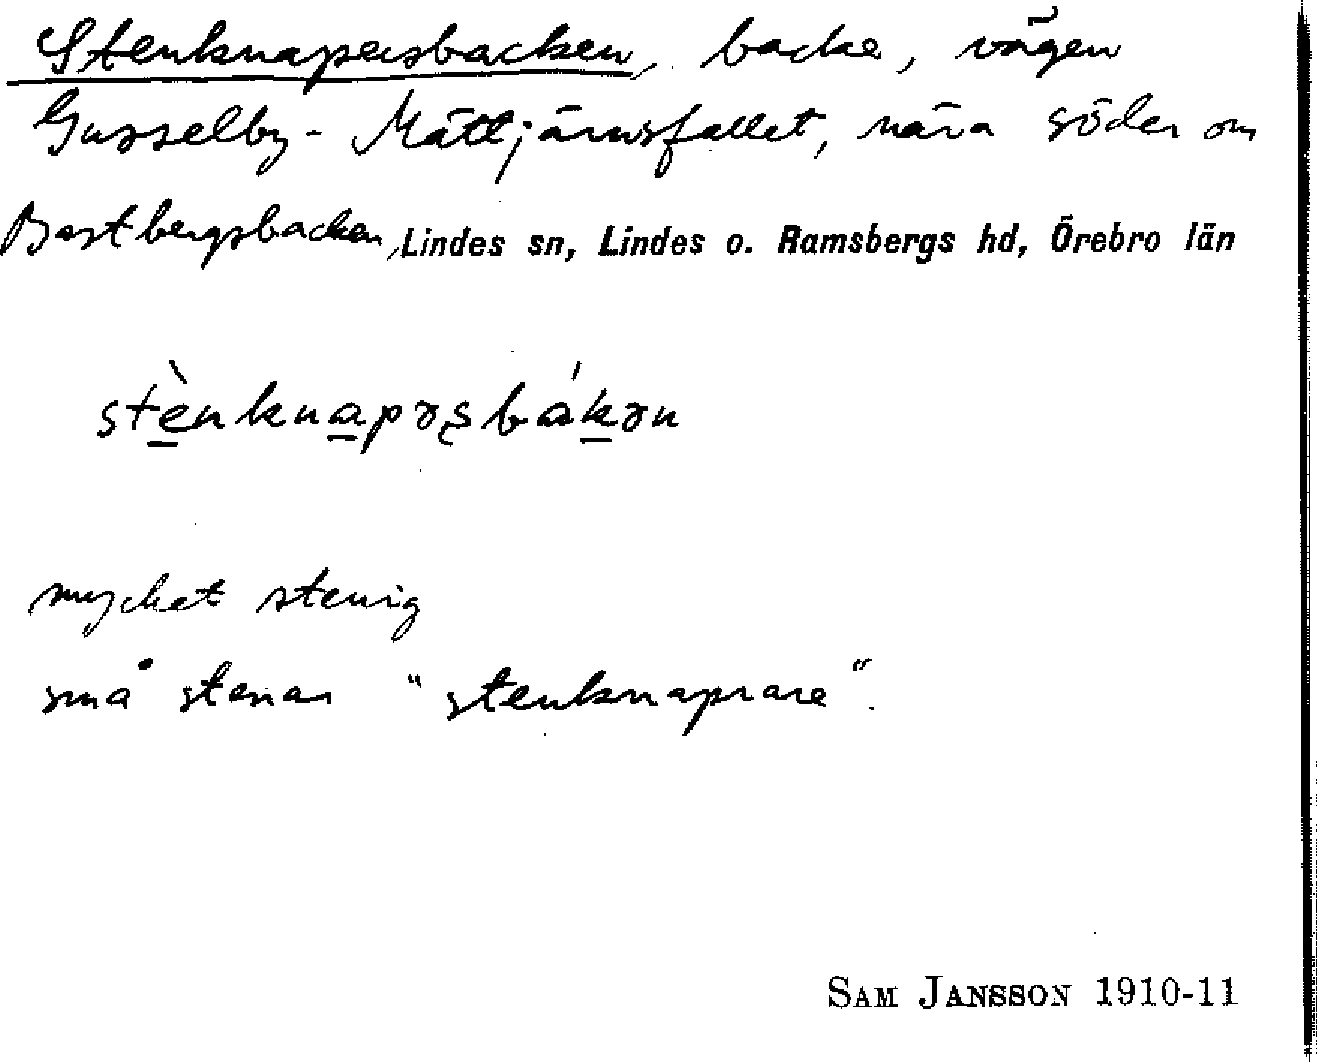 Stenknapersbacken, backe, vägen
Gusselby - Mättjärnsfallet, nära söder om
Bastbergsbacken, Lindes sn, Lindes o. Ramsbergs hd, Örebro län
stènknapəʂbákən
mycket stenig
små stenar "stenknaprare".
SAM JANSSON 1910-11